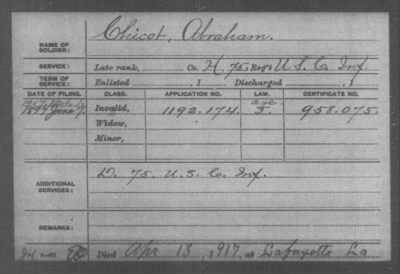 NAME OF SOLDIER: Chicot, Abraham.
SERVICE: Late rank, Co. H, 75 Reg't U.S.C. Inf.
TERM OF SERVICE: Enlisted 1 Discharged 1
DATE OF FILING. CLASS. APPLICATION NO. LAW. CERTIFICATE NO.
1907
age
1897 June 7. Invalid, 1192.174. J. 958.075.
Widow,
Minor,
ADDITIONAL SERVICES: D. 75. U.S.C. Inf.
REMARKS:
Died Apr 13, 1917, at Lafayette La